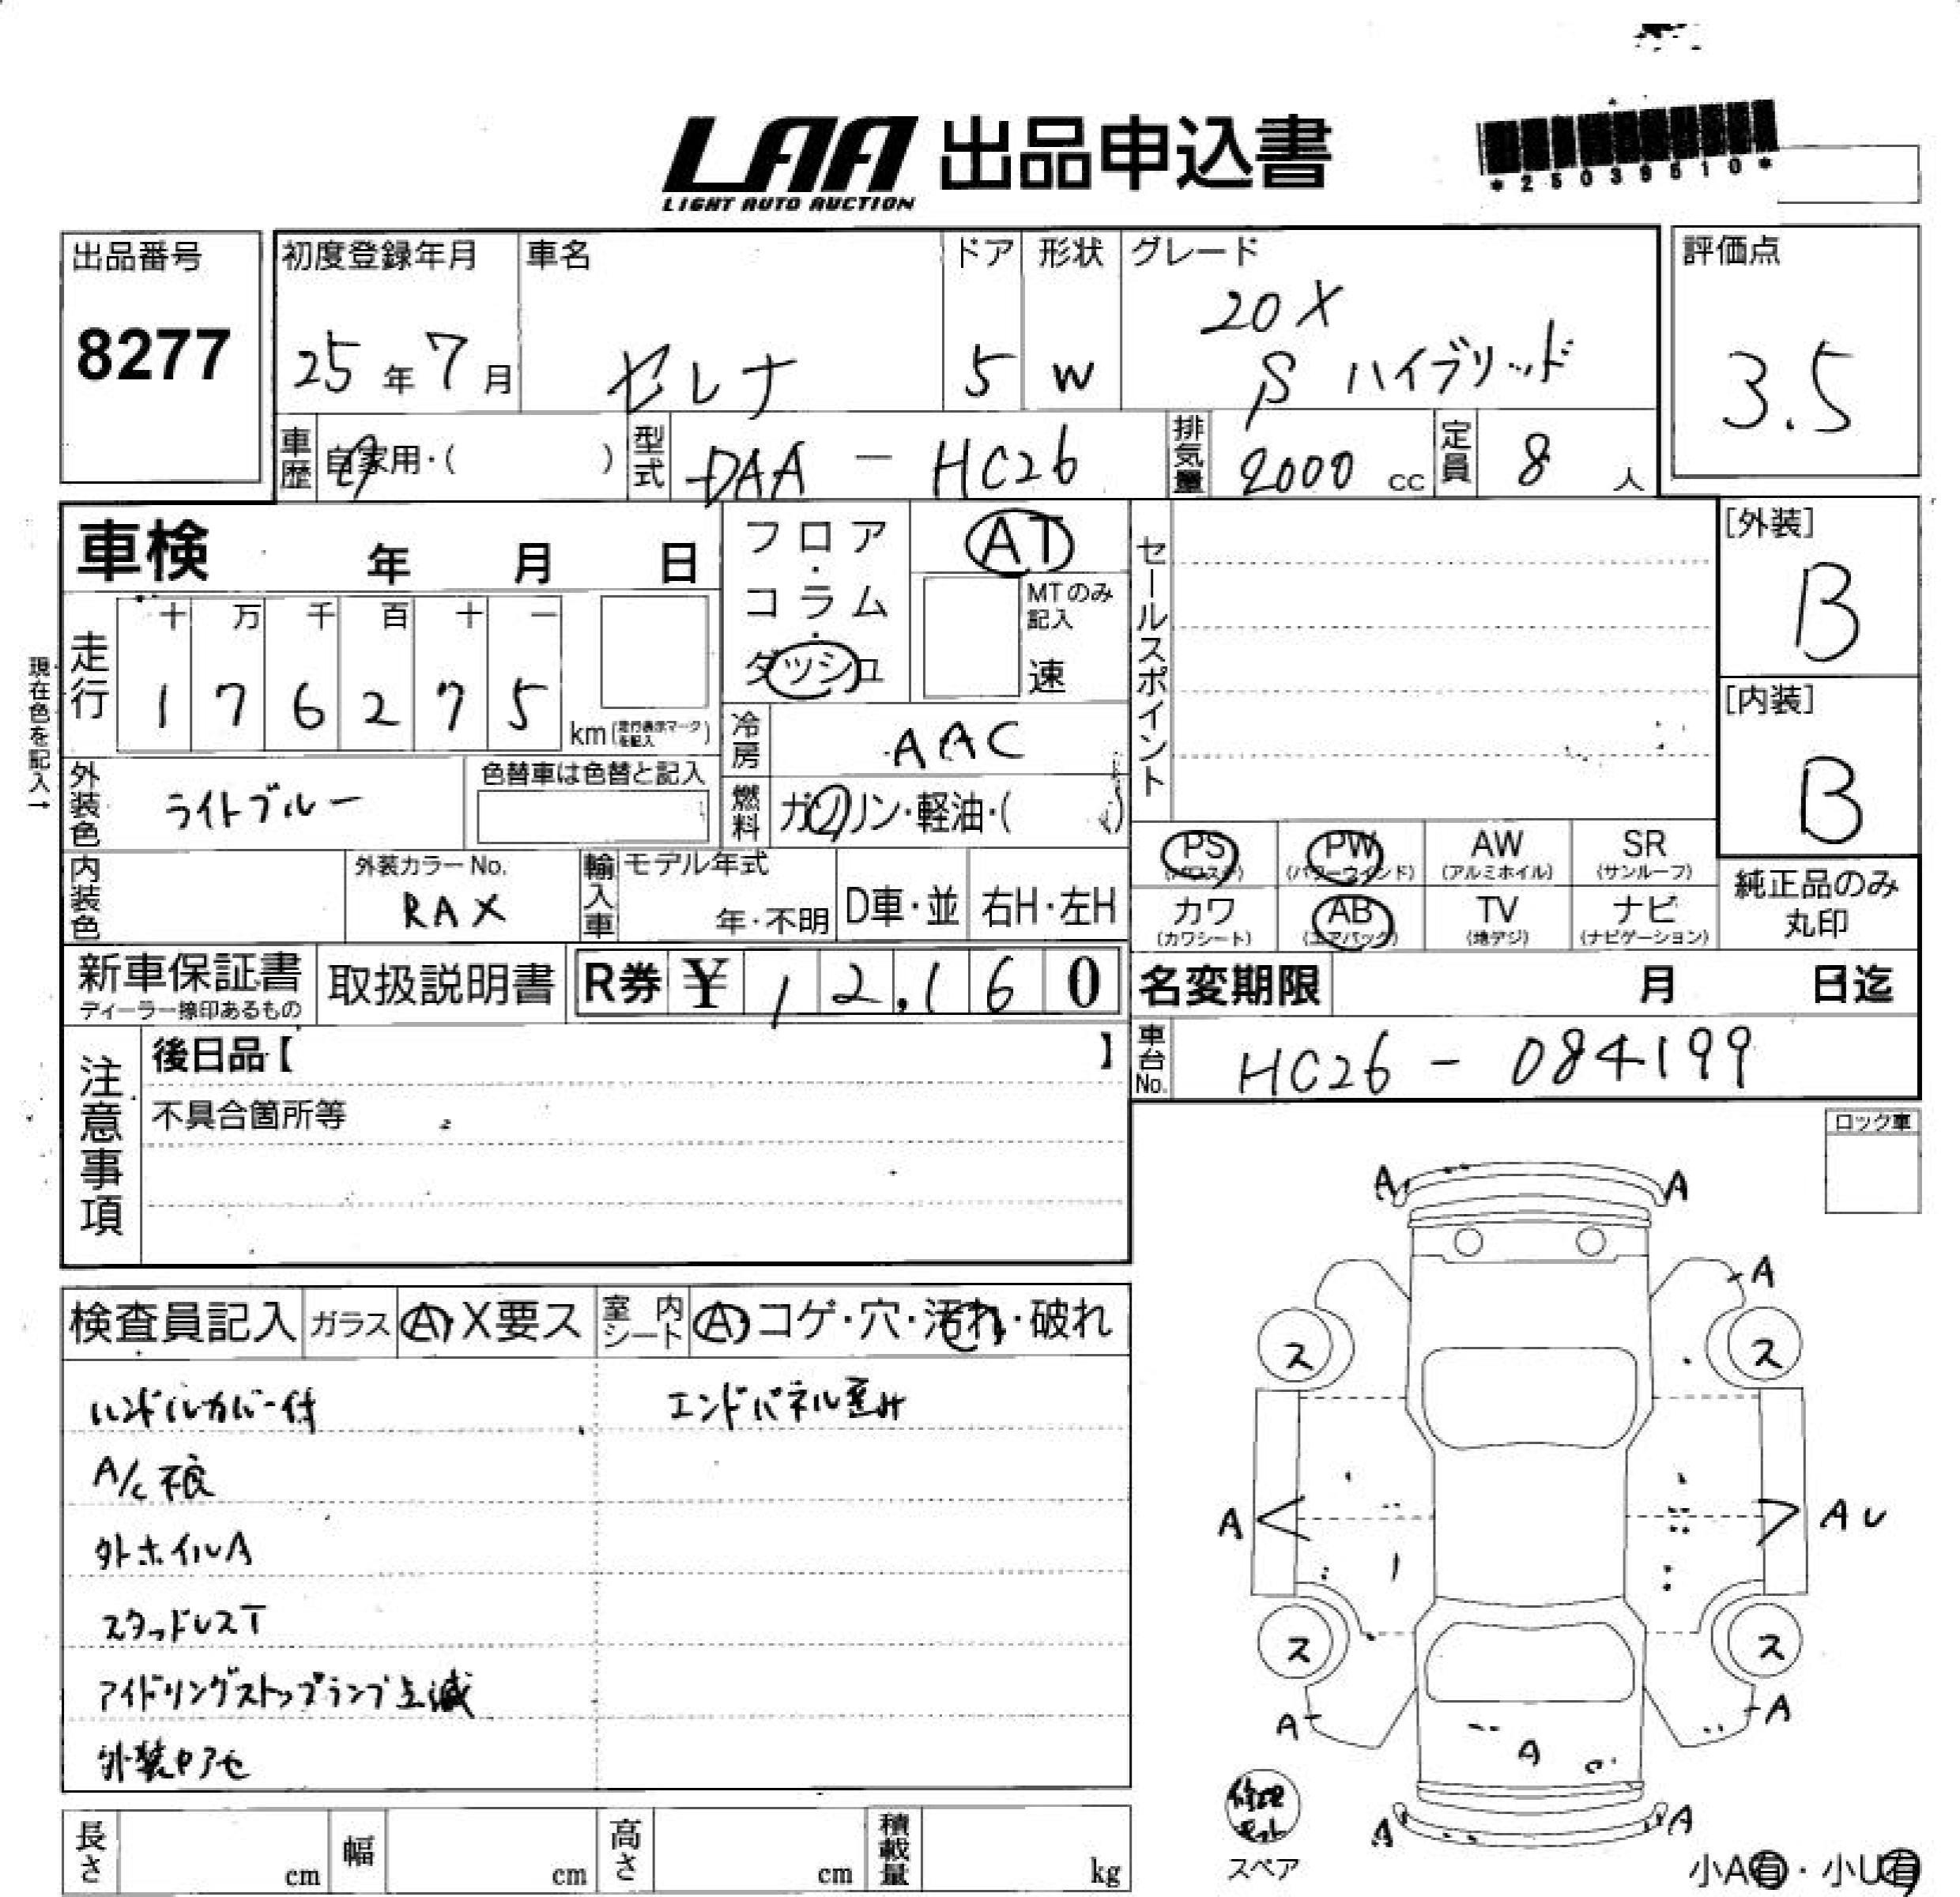 LAA 出品申込書
LIGHT AUTO AUCTION
*25039510*
出品番号 8277
初度登録年月 25年7月
車名 セレナ
ドア 5
形状 W
グレード 20X
S ハイブリッド
評価点 3.5
車歴 自家用・( )
型式 DAA - HC26
排気量 2000 cc
定員 8 人
車検 年 月 日
フロア・コラム・ダッシュ
AT
MTのみ記入
速
セールスポイント
[外装] B
[内装] B
現在色を記入→
走行 十 万 千 百 十 一
1 7 6 2 7 5
km (走行表示マークを記入)
冷房 AAC
外装色 ライトブルー
色替車は色替と記入
燃料 ガソリン・軽油・( )
内装色
外装カラーNo. RAX
輸入車 モデル年式
年・不明
D車・並
右H・左H
PS (パワステ)
PW (パワーウインド)
AW (アルミホイル)
SR (サンルーフ)
カワ (カワシート)
AB (エアバック)
TV (地デジ)
ナビ (ナビゲーション)
純正品のみ
丸印
新車保証書
ディーラー捺印あるもの
取扱説明書
R券 ¥ 12,160
名変期限 月 日迄
車台No. HC26 - 084199
注意事項
後日品【 】
不具合箇所等
ロック車
検査員記入
ガラス A・X要ス
室内シート A コゲ・穴・汚れ・破れ
ハンドルカバー付
エンドパネル歪み
A/C不良
外ホイルA
スタッドレスT
アイドリングストップランプ点滅
外装ヤアセ
A A
A
ス ス
A A U
ス ス
A A
A
A A
修理キット
スペア
小A有・小U有
長さ cm
幅 cm
高さ cm
積載量 kg